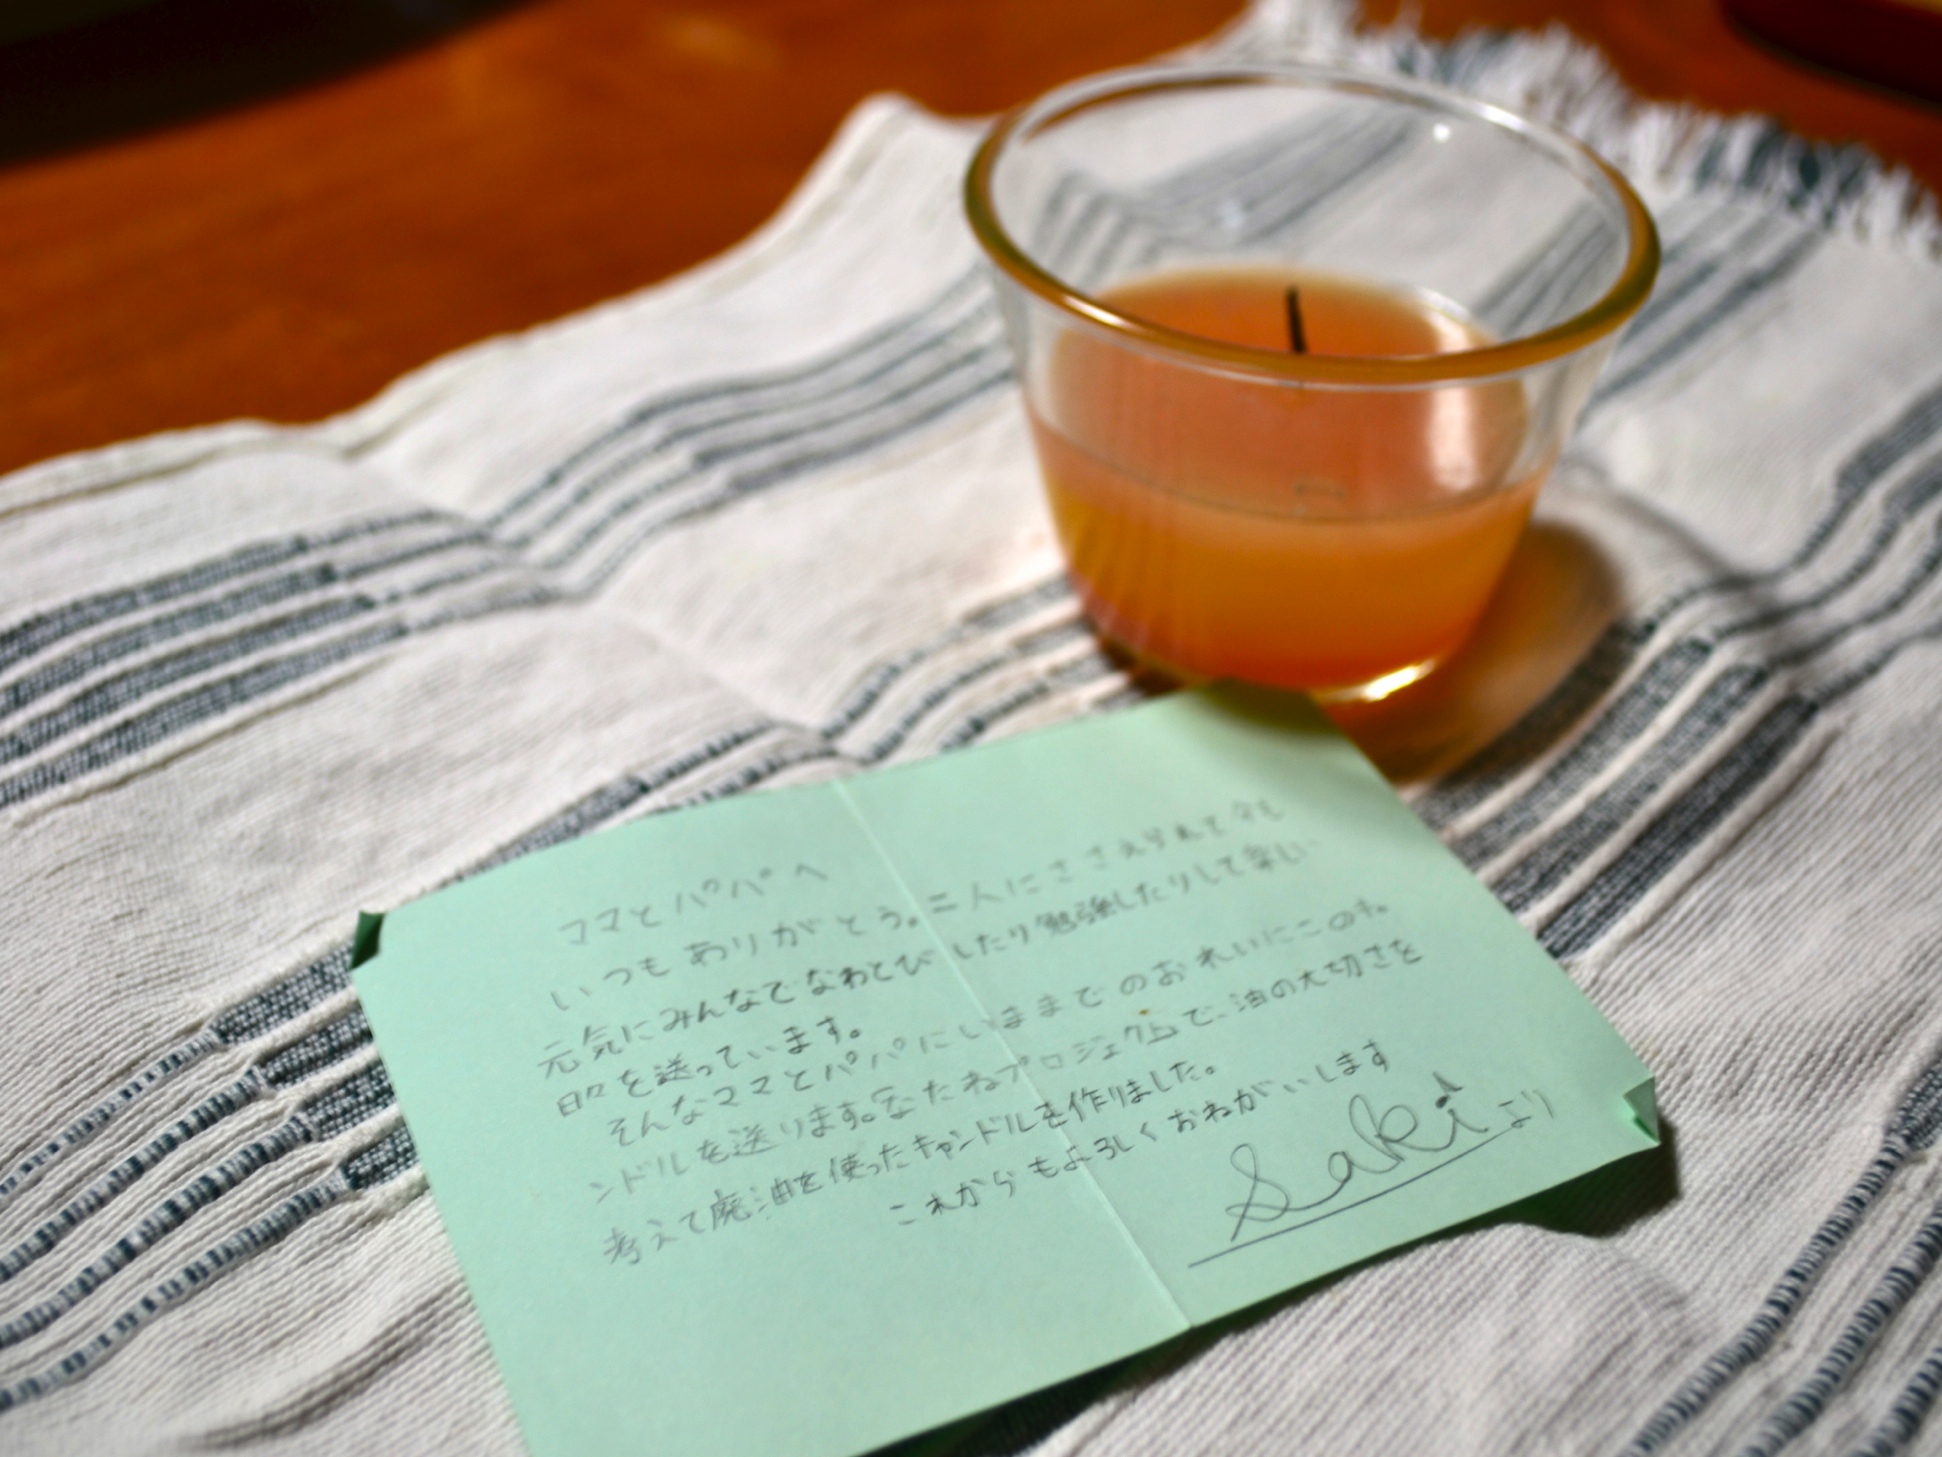 ママとパパへ
いつもありがとう。二人にささえられて今も
元気にみんなでなわとびしたり勉強したりして楽しい
日々を送っています。
そんなママとパパにいままでのおれいにこの
ンドルを送ります。なたねプロジェクトで、油の大切さを
考えて廃油を使ったキャンドルを作りました。
これからもよろしくおねがいします
Sakiより